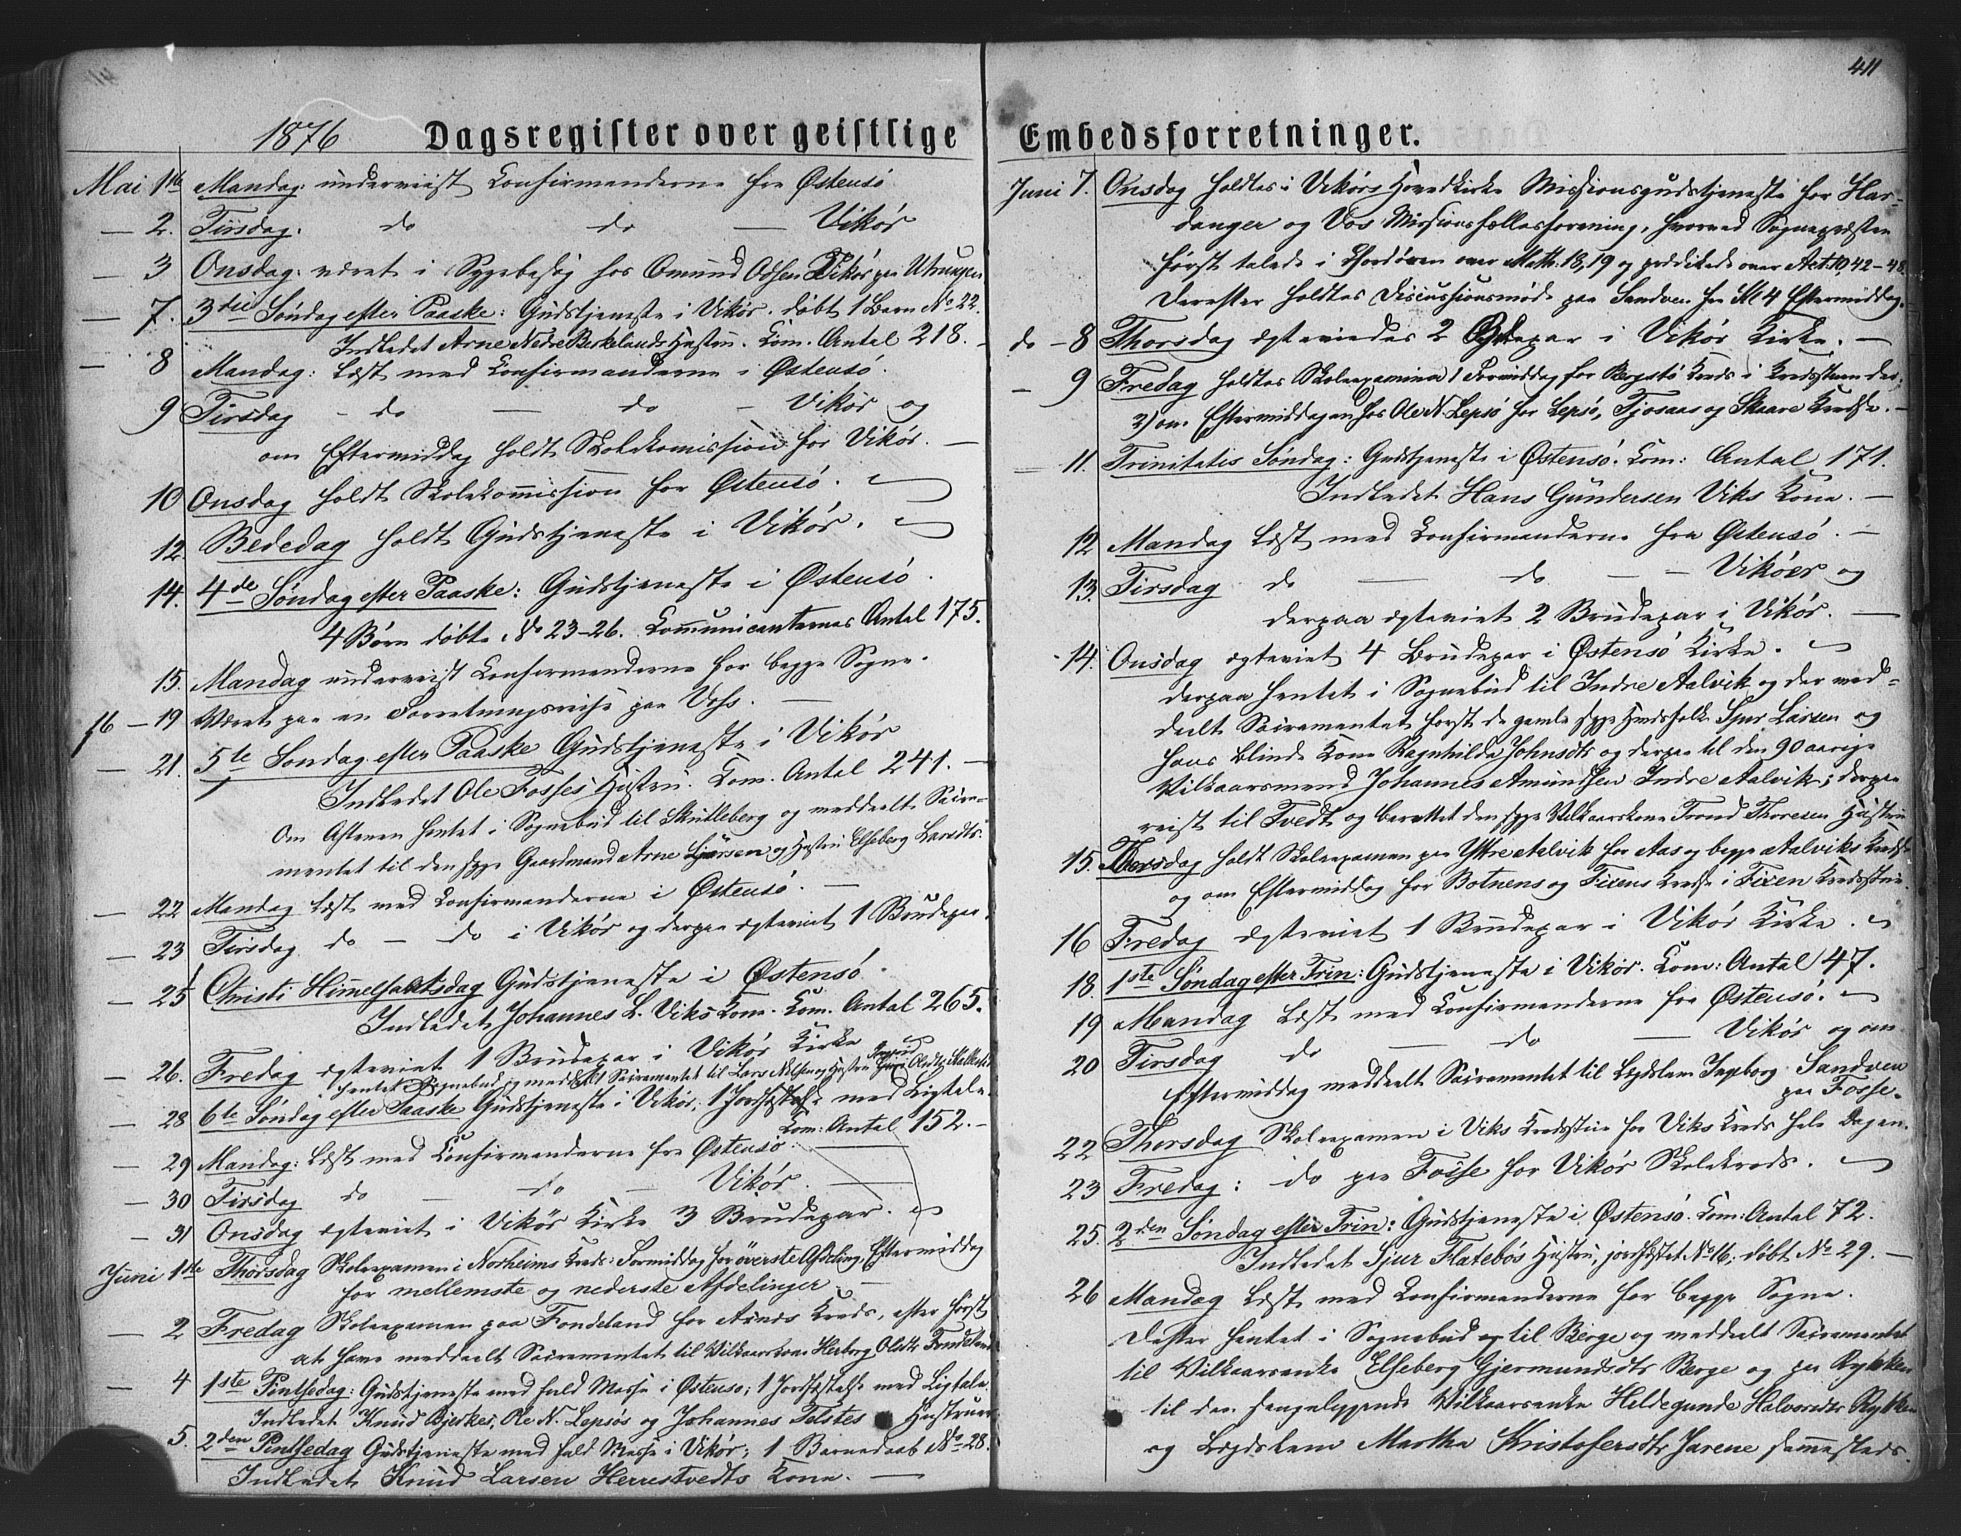 411
1876 Dagsregister over geistlige Embedsforretninger.
Mai 1ste Mandag: underviist Confirmanderne fra Østensö
— 2. Tirsdag. do do — Vikör
— 3 Onsdag: været i Sygebesøg hos Omund Odsen Vikör paa
— 7. 3die Søndag efter Paaske: Gudstjeneste i Vikör. døbt 1 Barn No 22.
Indledet Arne Nedre Berkelands Hustru. Com. Antal 218.
— 8 Mandag: Læst med Confirmanderne i Østensö.
9 Tirsdag - do — do — Vikör og
om Eftermiddag holdt Skolekomission for Vikör. —
10 Onsdag holdt Skolekommission for Østensö.
12 Bededag holdt Gudstjeneste i Vikör.
14. 4de Søndag efter Paaske: Gudstjeneste i Østensö.
4 Børn døbte, No 23-26. Communicanternes Antal 175.
15. Mandag underviist Confirmanderne for begge Sogne.
16 — 19 Været paa en Forretningsreise paa Voss. —
— 21. 5te Søndag efter Paaske Gudstjeneste i Vikör
Indledet Ole Fosses Hustru. Com. Antal 241. —
Om Aftenen hentet i Sognebud til Skutleberg og meddeelte Sacra-
mentet til den syge Gaardmand Arne Larsen og Hustru Elseberg Larsdtr.
— 22 Mandag Læst med Confirmanderne i Østensö. —
23 Tirsdag do — do i Vikör og derpaa egteviet 1 Brudepar.
— 25 Christi Himmelfartsdag Gudstjeneste i Østensö.
Indledet Johannes L. Viks Kone. Com. Antal 265.
— 26. Fredag egteviet 1 Brudepar i Vikör Kirke
hentet i Sognebud og meddelt Sacramentet til Lars Nilsen og Hustru Olsdtr
— 28 6te Søndag efter Paaske Gudstjeneste i Vikör; 1 Jordfæstelse med Ligtale
Com: Antal 152. —
— 29 Mandag: Læst med Confirmanderne fra Østensö.
— 30 Tirsdag do — do — Vikör.
— 31 Onsdag egteviet i Vikör Kirke 3 Brudepar.
Juni 1ste Thorsdag Skoleexamen i Norheims Kreds: Formiddag for øverste Afdeling, Eftermiddag
for mellemste og nederste Afdelinger —
— 2 Fredag Skoleexamen paa Fondeland for Aunes Kreds, efter først
at have meddeelt Sacramentet til Vilkaarskone Herborg Olsdtr Fondeland
— 4 1ste Pintsedag: Gudstjeneste med fuld Messe i Østensö; 1 Jordfæstelse med Ligtale.
Indledet Knud Bjerkes, Ole N. Lepsøs og Johannes Telstes Hustruer
5. 2den Pintsedag Gudstjeneste med fuld Messe i Vikör; 1 Barnedaab No 28.
Indledet Knud Larsen Herrestvedts Kone. —
Juni 7. Onsdag holdtes i Vikörs Hovedkirke Missionsgudstjeneste for Har-
danger og Vos Missionsfællesforening, hvorved Sognepræsten
først talede i Chordøren over Math. 18,19 og prædikede over Act. 10, 42-48.
Derefter holdtes Discussionsmøde paa Sandven fra Kl 4 Eftermiddag.
do — 8 Thorsdag egteviedes 2 Brudepar i Vikör Kirke. —
— 9 Fredag holdtes Skoleexamina 1 Formiddag for Bergstø Kreds i Kredsstuen der;
2) om Eftermiddagen hos Ole N. Lepsö for Lepsö, Tjosaas og Skaare Kredse. —
— 11. Trinitatis Søndag: Gudstjeneste i Østensö. Com: Antal 171.
Indledet Hans Gundersen Viks Kone. —
12 Mandag Læst med Confirmanderne fra Østensö. —
13. Tirsdag do — do — — Vikör og
derpaa egteviet 2 Brudepar i Vikör. —
14. Onsdag egteviet 4 Brudepar i Østensö Kirke.
derpaa hentet i Sognebud til Indre Aalvik og der med-
deelt Sacramentet først de gamle syge Huusfolk Sjur Larsen og
hans blinde Kone Ragnhilda Johnsdtr og derpaa til den 90 aarige
Vilkaarsmand Johannes Amundsen Indre Aalvik; derpaa
reist til Tvedt og berettet den syge Vilkaarskone Trond Thoresen Hustru
15. Thorsdag holdt Skoleexamen paa Ytre Aalvik for Aas og begge Aalviks Kredse
og om Eftermiddag for Botnens og Fixens Kredse i Fixen Kredsstue.
16 Fredag egteviet 1 Brudepar i Vikör Kirke.
18. 1ste Søndag efter Trin: Gudstjeneste i Vikör. Com: Antal 47.
19 Mandag Læst med Confirmanderne fra Østensö.
20 Tirsdag do — do — Vikör og om
Eftermiddag meddeelt Sacramentet til Lægdslem Ingborg Sandven
paa Fosse.
22 Thorsdag Skoleexamen i Viks Kredsstue for Viks Kreds hele Dagen.
23 Fredag: do paa Fosse for Vikör Skolekreds.
25. 2den Søndag efter Trin: Gudstjeneste i Østensö. Com: Antal 72.
Indledet Sjur Flatebøs Hustru, jordfæstet No 16; døbt No 29. —
26 Mandag Læst med Confirmanderne for begge Sogne.
Derefter hentet i Sognebud til Berge og meddeelt Sacramentet
til Vilkaarsenke Elseberg Gjermundsdtr Berge og paa Rykken
til den sengeliggende Vilkaarsenke Hildegunde Halvorsdtr Rykken
og Lægdslem Martha Kristofersdtr Jarene sammesteds.